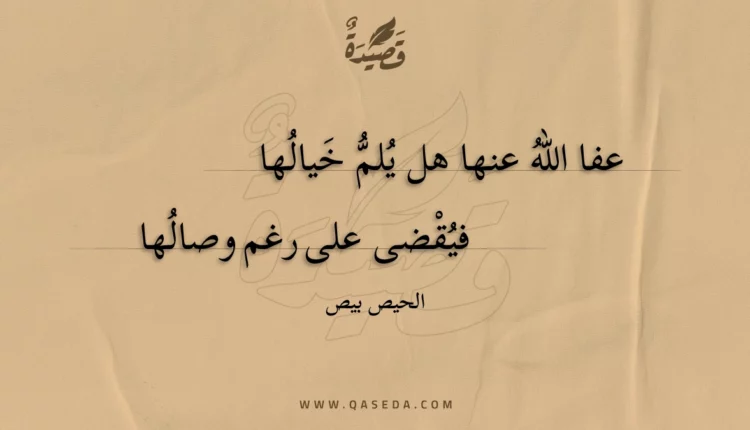 قَصِيدَةٌ
عفا اللهُ عنها هل يُلمُّ خَيالُها
فيُقْضى على رغم وصالُها
الحيص بيص
WWW.QASEDA.COM